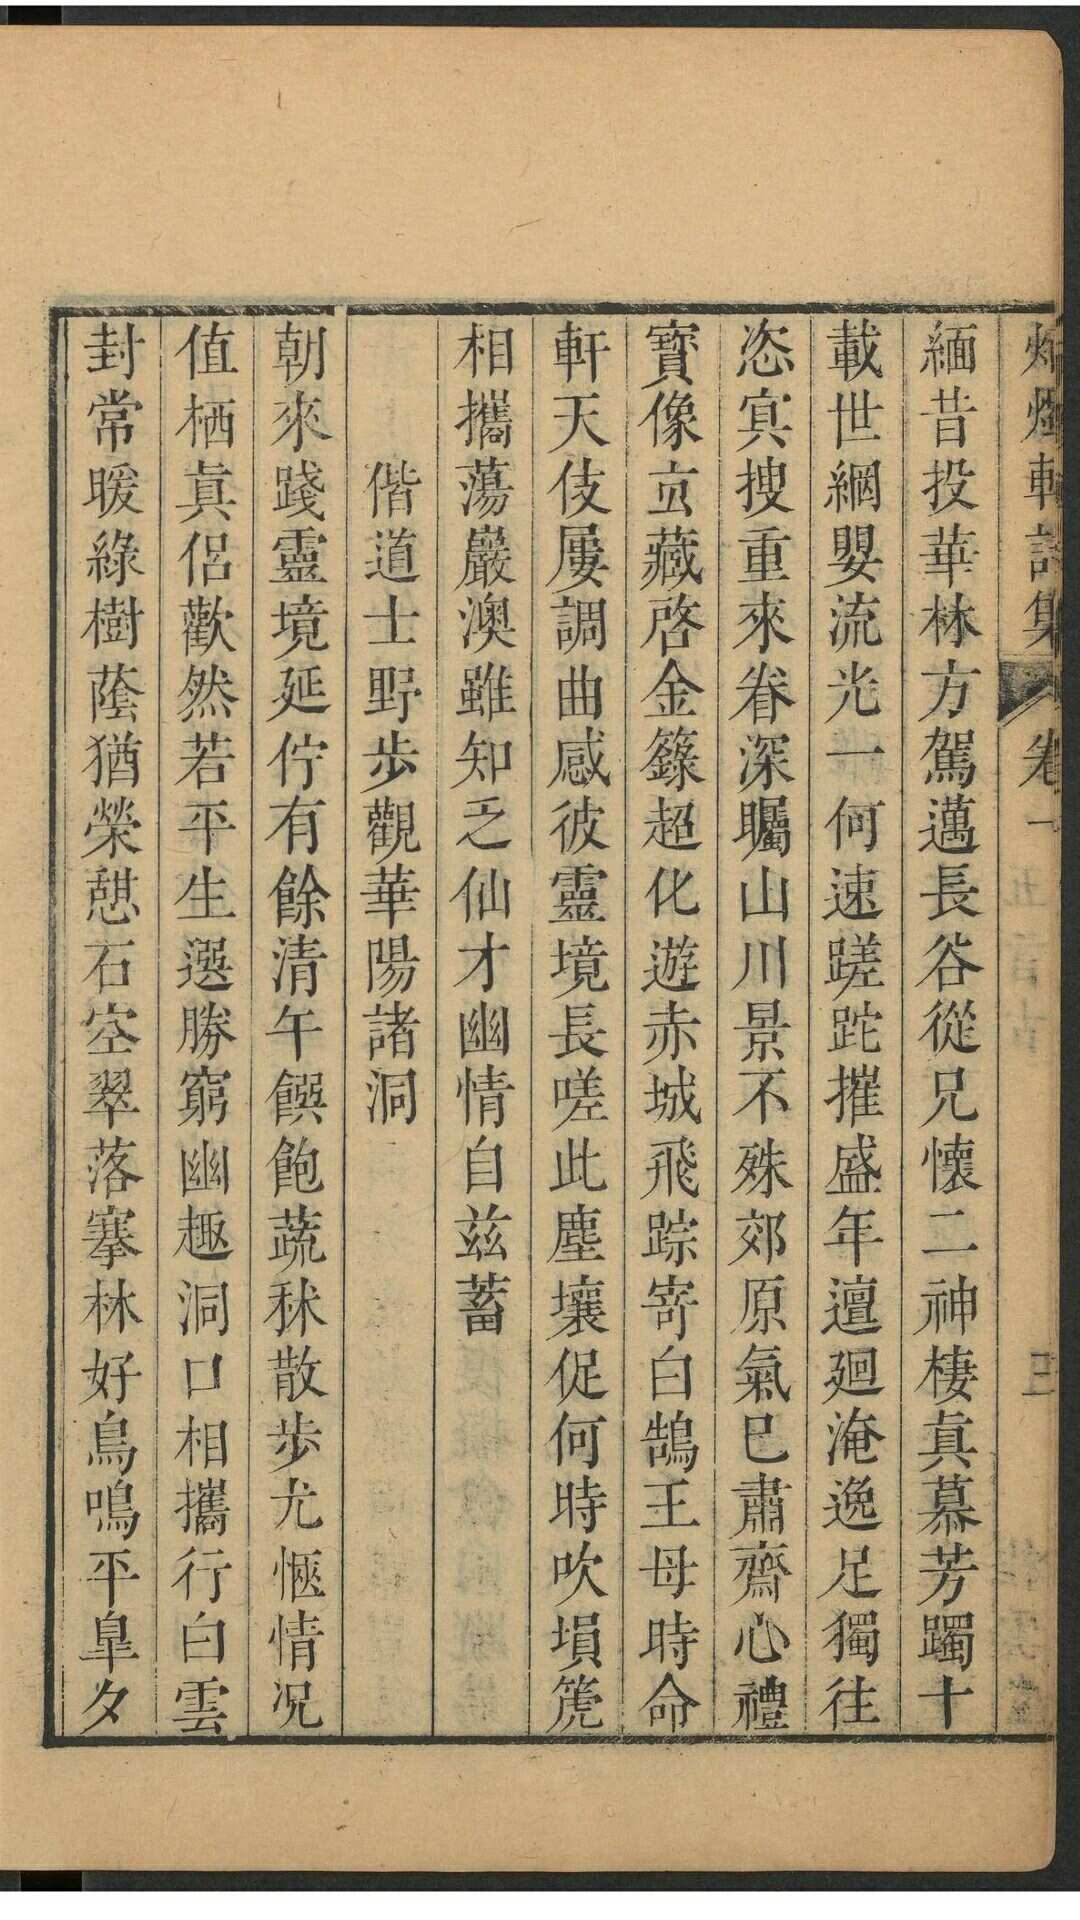 軒詩集 卷一 三
緬昔投華林方駕邁長谷從兄懷二神棲真慕芳躅十
載世網嬰流光一何速蹉跎摧盛年邅廻淹逸足獨往
恣冥搜重來眷深矚山川景不殊郊原氣巳肅齋心禮
寶像玄藏啓金籙超化遊赤城飛踪寄白鵠王母時命
軒天伎屢調曲感彼靈境長嗟此塵壤促何時吹塤箎
相攜蕩巖澳雖知乏仙才幽情自兹蓄
偕道士野步觀華陽諸洞
朝來踐靈境延佇有餘清午饌飽蔬秫散步尤愜情况
值栖眞侶歡然若平生選勝窮幽趣洞口相攜行白雲
封常暖綠樹蔭猶榮憇石空翠落搴林好鳥鳴平皐夕